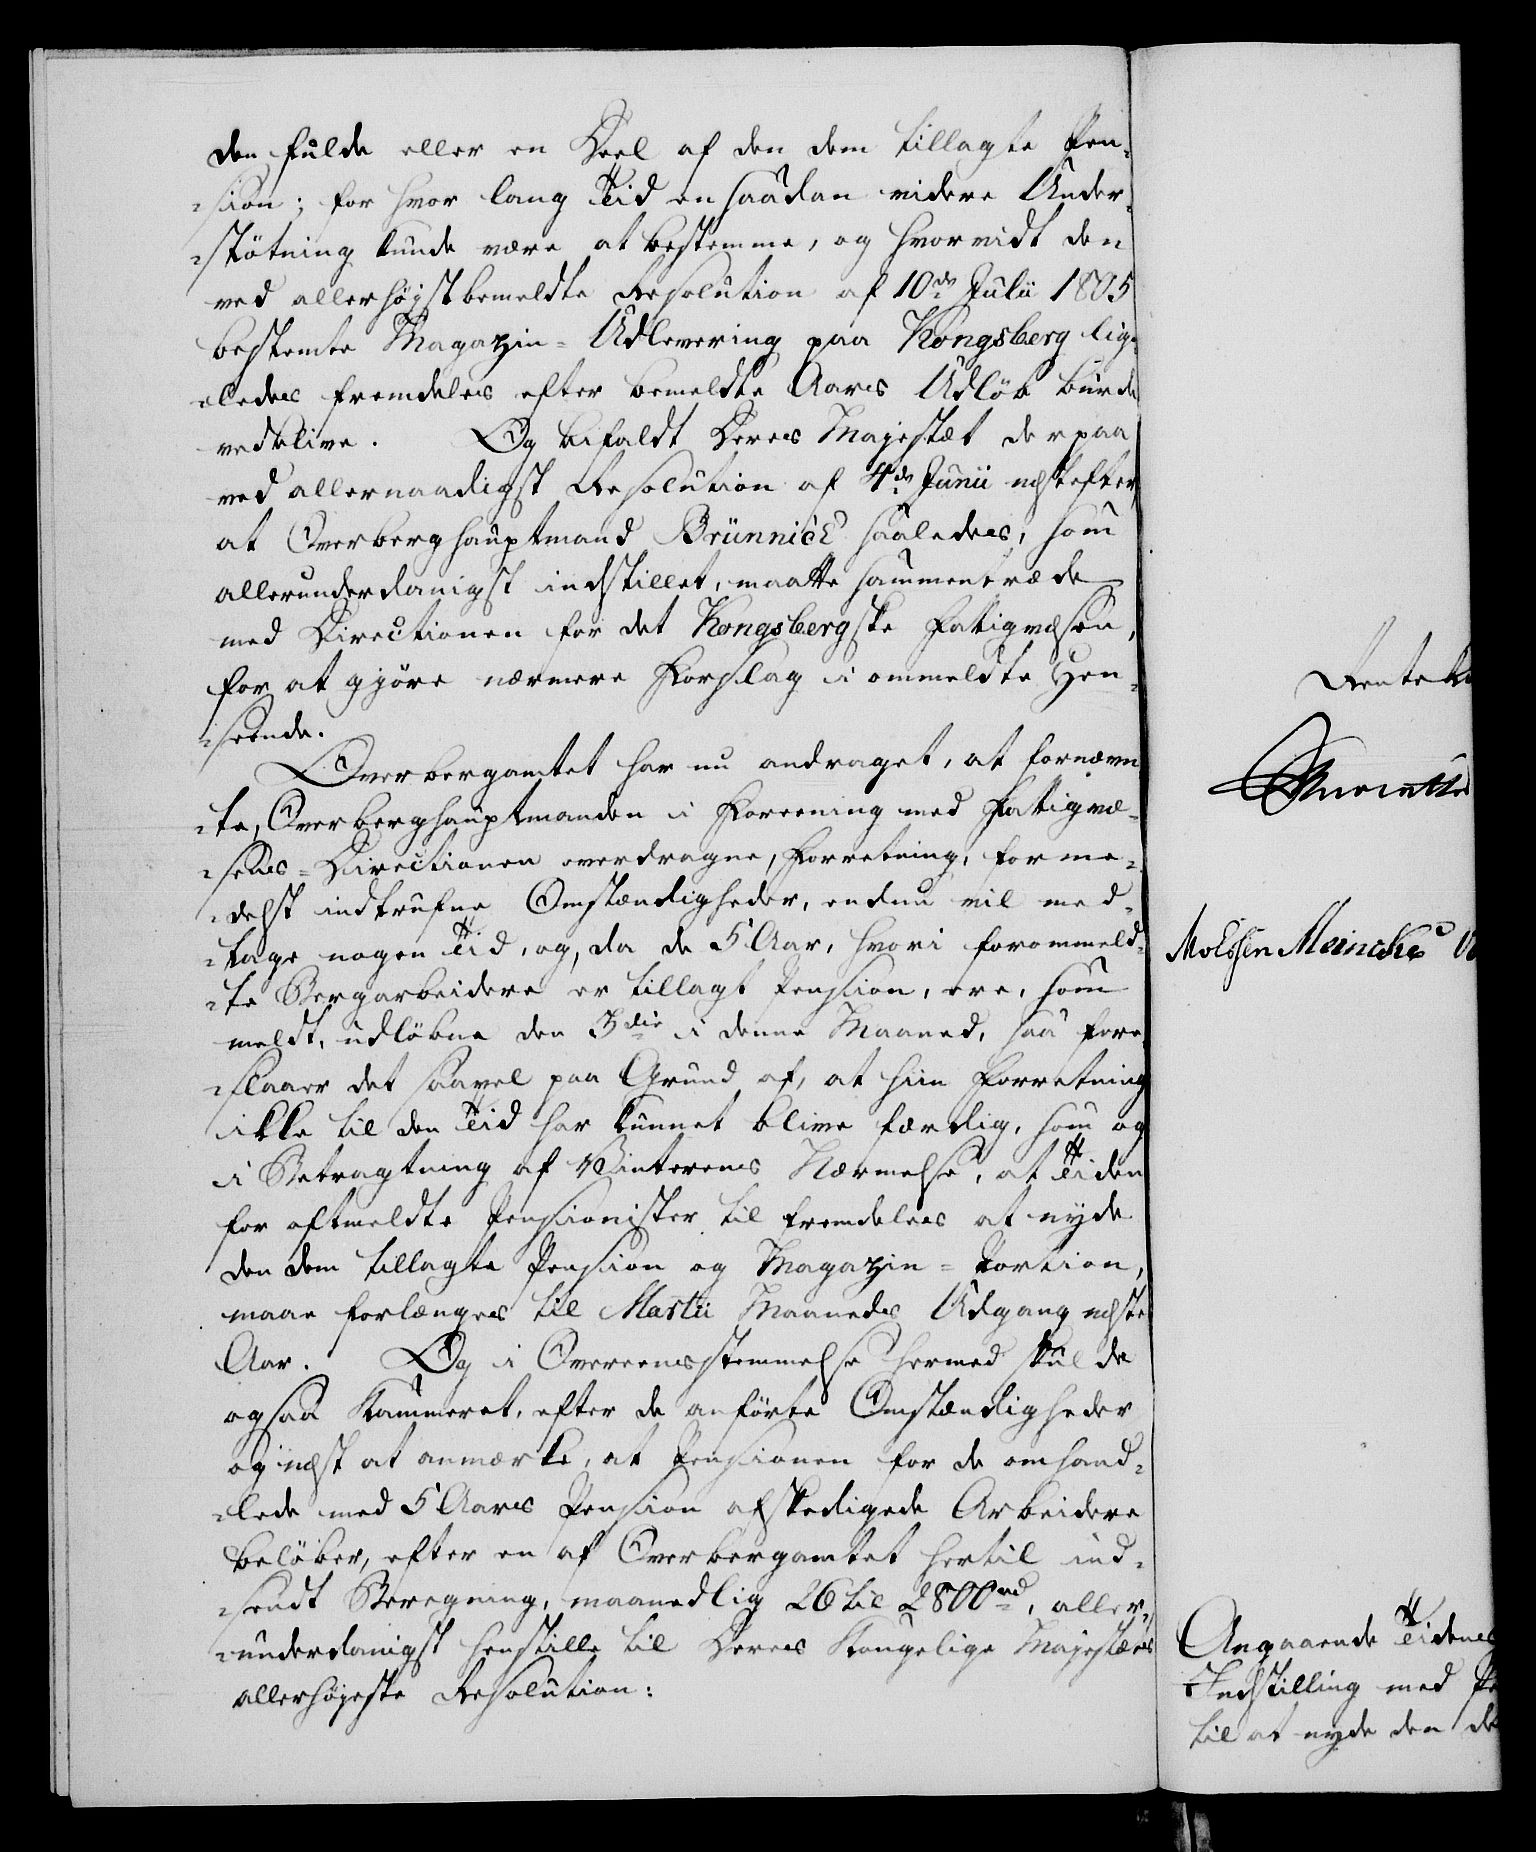 den fulde eller en Deel af den dem tillagte Pen-
-sion; for hvor lang Tid en saadan videre Under-
-støtning kunde være at bestemme, og hvorvidt den
ved allerhøystbemeldte Resolution af 10de Julii 1805
bestemte Magazin-Udlevering paa Kongsberg lige-
-ledes fremdeles efter bemeldte Aars Udløb burde
vedblive. Og bifaldt Deres Majestæt derpaa
ved allernaadigst Resolution af 4de Junii næstefter,
at Overberghauptmand Brünnich saaledes, som
allerunderdanigst indstillet, maatte sammentræde
med Directionen for det Kongsbergske Fatigvæsen,
for at gjøre nærmere Forslag i ommeldte Hen-
-seende.
Overbergamtet har nu andraget, at fornævn-
-te, Overberghauptmanden i Foreening med Fatigvæ-
-sens-Directionen overdragne, Forretning, forme-
-delst indtrufne Omstændigheder, endnu vil med-
-tage nogen Tid, og, da de 5 Aar, hvori forommeld-
-te Bergarbeidere er tillagt Pension, ere, som
meldt, udløbne den 3die i denne Maaned, saa fore-
-slaaer det saavel paa Grund af, at hiin Forretning
ikke til den Tid har kunnet blive færdig, som og
i Betragtning af Vinterens Nærmelse, at Tiden
for oftmeldte Pensionister til fremdeles at nyde
den dem tillagte Pension og Magazin-Portion,
maae forlænges til Martii Maaneds Udgang næste
Aar. Og i Overeensstemmelse hermed skulde
ogsaa Kammeret, efter de anførte Omstændigheder
og næst at anmærke, at Pensionen for de omhand-
-lede med 5 Aars Pension afskedigede Arbeidere
beløber, efter en af Overbergamtet hertil ind-
-sendt Beregning, maanedlig 26 til 2800 rd, aller-
-underdanigst henstille til Deres Kongelige Majestæts
allerhøjeste Resolution:
Renteka
Meincke
Angaaende Tidens
Indstilling med Pe
til at nyde den de